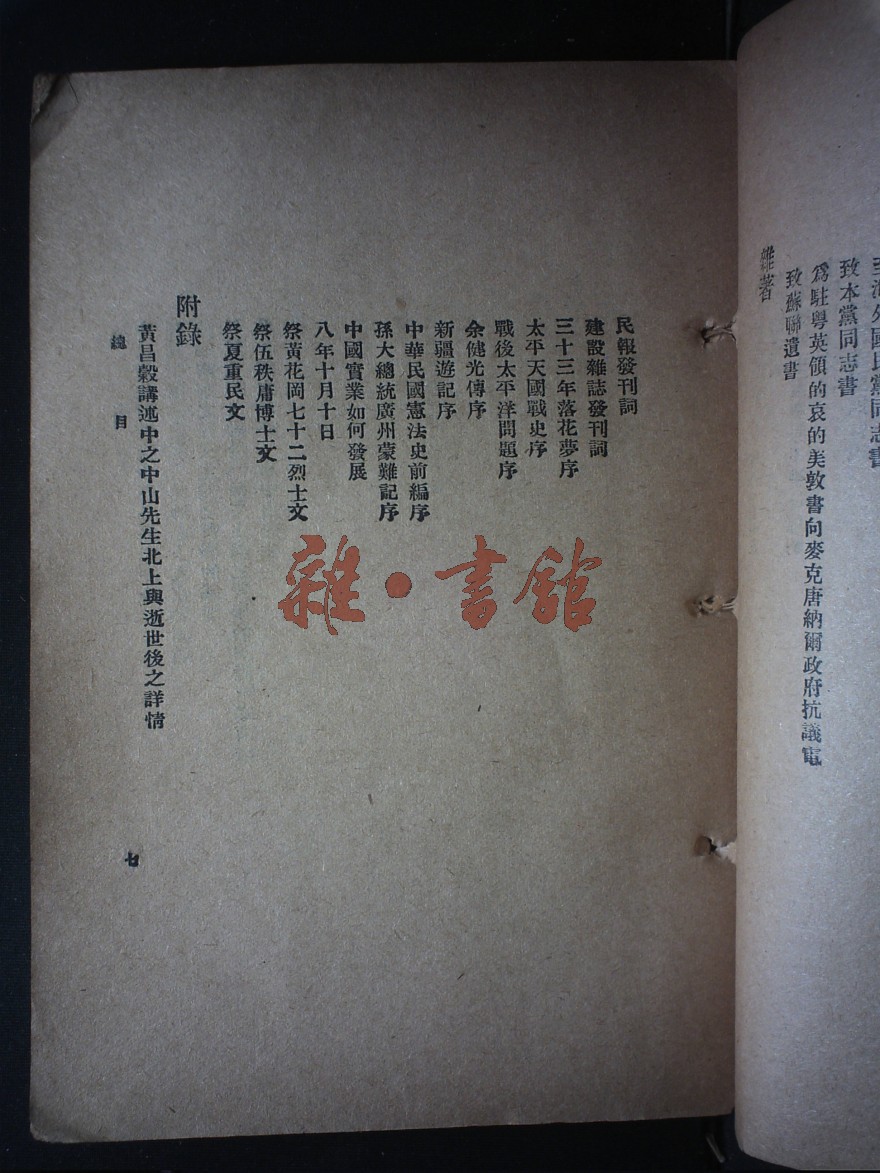 至海外國民黨同志書
致本黨同志書
爲駐粵英領的哀的美敦書向麥克唐納爾政府抗議電
致蘇聯遺書
雜著
民報發刊詞
建設雜誌發刊詞
三十三年落花夢序
太平天國戰史序
戰後太平洋問題序
余健光傳序
新疆遊記序
中華民國憲法史前編序
孫大總統廣州蒙難記序
中國實業如何發展
八年十月十日
祭黃花岡七十二烈士文
祭伍秩庸博士文
祭夏重民文
附錄
黃昌穀講述中之中山先生北上與逝世後之詳情
總目
七
雜·書館